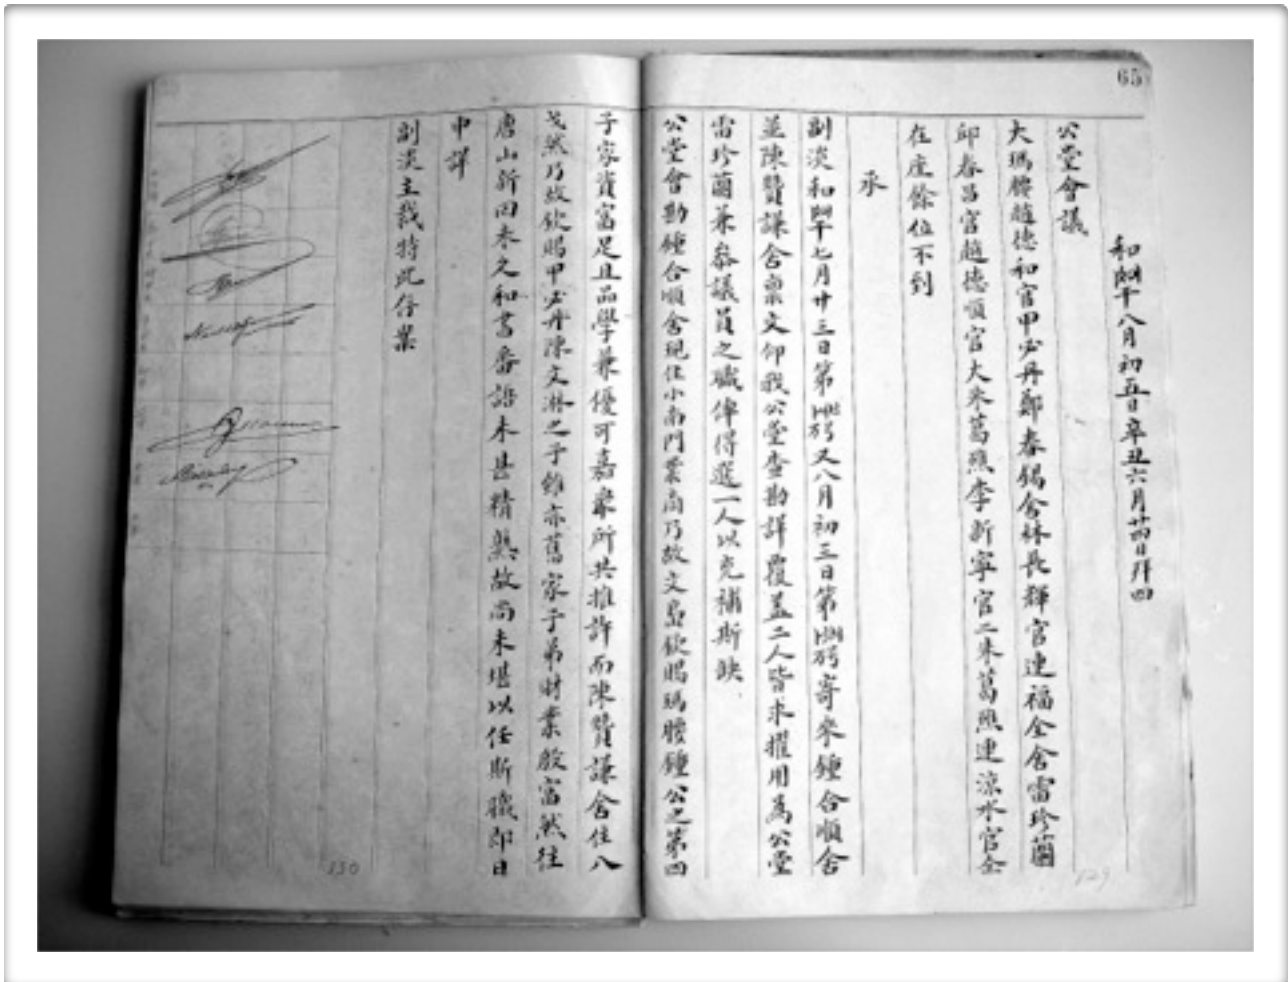 65
和 八月初五日辛丑六月廿四日拜四
公堂會議
大瑪腰趙德和官甲必丹鄭春錫舍林長輝官連福全舍雷珍蘭
邱春昌官趙德順官大朱葛礁李新寧官二朱葛礁連涼水官仝
在座餘位不到
承
副淡和 七月廿三日第 號又八月初三日第 號寄來鍾合順舍
並陳贊謙舍稟文仰我公堂查勘詳覆蓋二人皆求擢用為公堂
雷珍蘭兼參議員之職俾得選一人以充補斯缺
公堂會勘鍾合順舍現住小南門業商乃故文島欽賜瑪腰鍾公之第四
子家資富足且品學兼優可嘉衆所共推許而陳贊謙舍住八
戈然乃故欽賜甲必丹陳文淋之子雖亦舊家子弟財業殷富然往
唐山新回未久和書番語未甚精熟故尚未堪以任斯職即日
申詳
副淡主裁特此存案
129
130